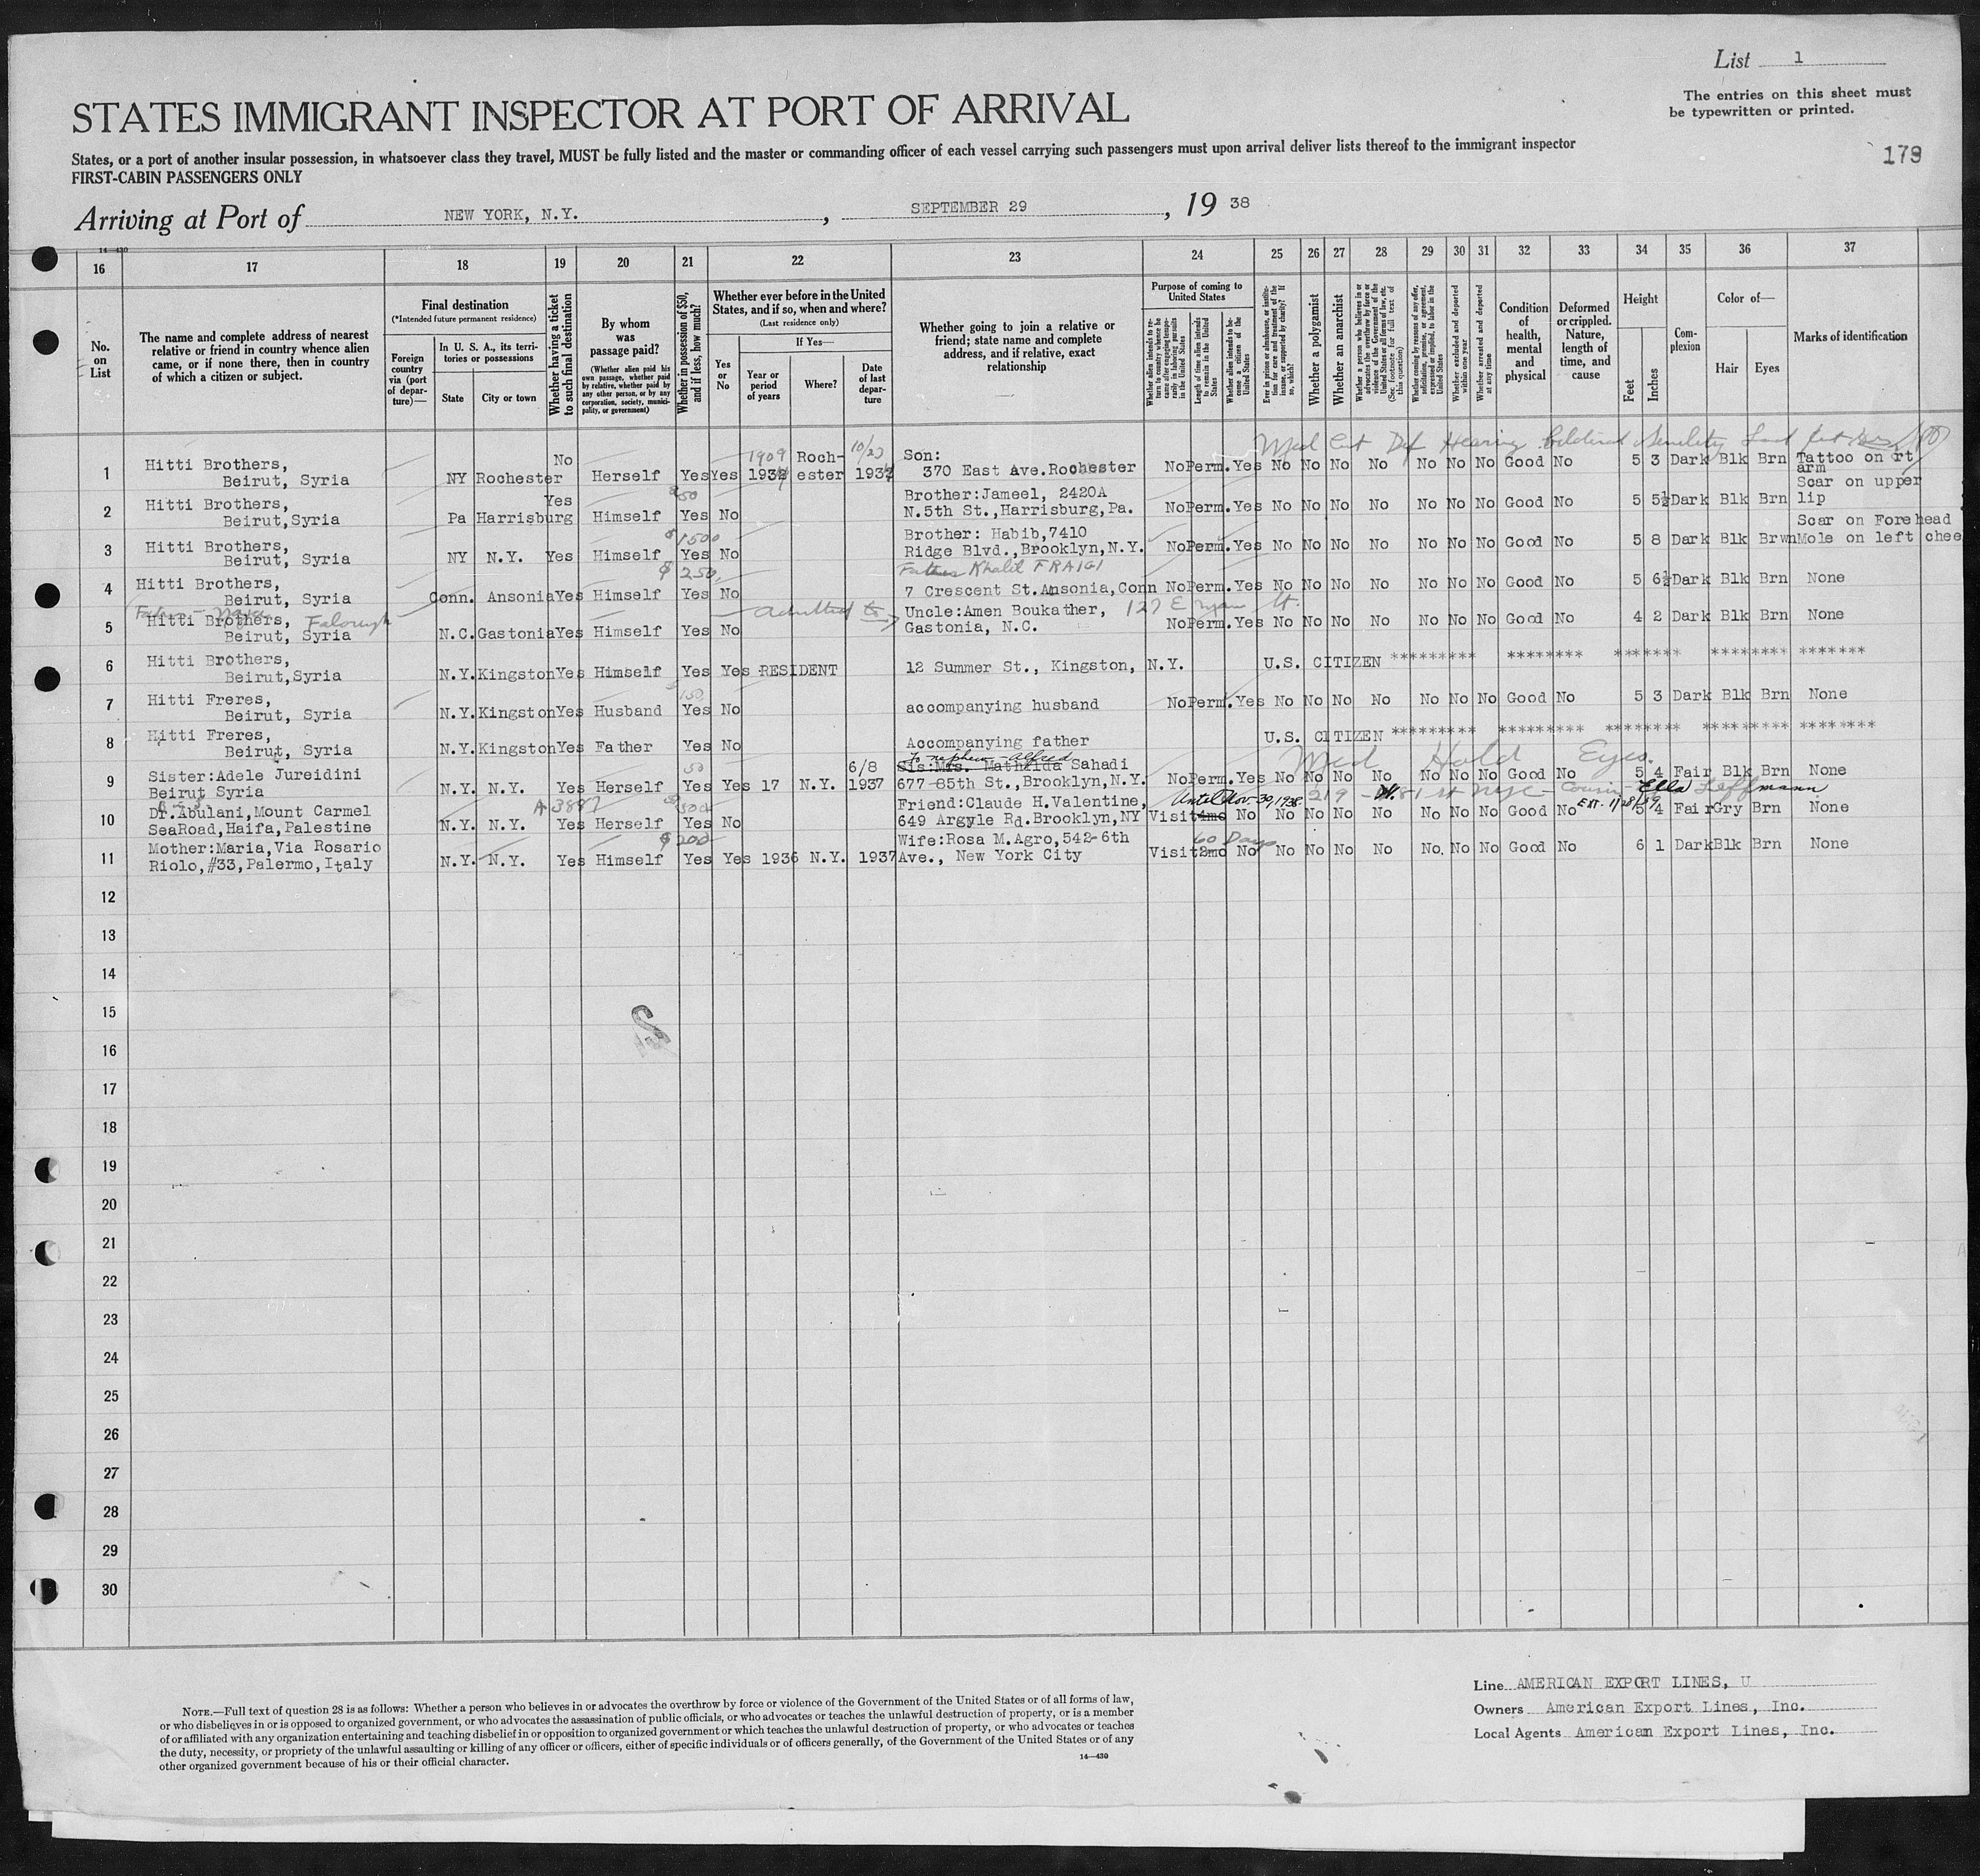 List 1
The entries on this sheet must
be typewritten or printed.
STATES IMMIGRANT INSPECTOR AT PORT OF ARRIVAL
179
States, or a port of another insular possession, in whatsoever class they travel, MUST be fully listed and the master or commanding officer of each vessel carrying such passengers must upon arrival deliver lists thereof to the immigrant inspector
FIRST-CABIN PASSENGERS ONLY
Arriving at Port of NEW YORK, N.Y. , SEPTEMBER 29 , 19 38
14—430
16 17 18 19 20 21 22 23 24 25 26 27 28 29 30 31 32 33 34 35 36 37
No. on List
The name and complete address of nearest relative or friend in country whence alien came, or if none there, then in country of which a citizen or subject.
Final destination
(*Intended future permanent residence)
Foreign country via (port of departure)—
In U. S. A., its territories or possessions
State City or town
Whether having a ticket to such final destination
By whom was passage paid?
(Whether alien paid his own passage, whether paid by relative, whether paid by any other person, or by any corporation, society, municipality, or government)
Whether in possession of $50, and if less, how much?
Whether ever before in the United States, and if so, when and where?
(Last residence only)
If Yes—
Yes or No
Year or period of years
Where?
Date of last departure
Whether going to join a relative or friend; state name and complete address, and if relative, exact relationship
Purpose of coming to United States
Whether alien intends to return to country whence he came after engaging temporarily in laboring pursuits in the United States
Length of time alien intends to remain in the United States
Whether alien intends to become a citizen of the United States
Ever in prison or almshouse, or institution for care and treatment of the insane, or supported by charity? If so, which?
Whether a polygamist
Whether an anarchist
Whether a person who believes in or advocates the overthrow by force or violence of the Government of the United States or all forms of law, etc. (See footnote for full text of this question)
Whether coming by reasons of any offer, solicitation, promise, or agreement, expressed or implied, to labor in the United States
Whether excluded and deported within one year
Whether arrested and deported at any time
Condition of health, mental and physical
Deformed or crippled. Nature, length of time, and cause
Height
Feet Inches
Complexion
Color of—
Hair Eyes
Marks of identification
Med Cert Def Hearing bilateral Senility
1 Hitti Brothers, Beirut, Syria NY Rochester No Herself Yes Yes 1909 Rochester 10/20 Son: 370 East Ave. Rochester No Perm. Yes No No No No No No No Good No 5 3 Dark Blk Brn Tattoo on rt arm
2 Hitti Brothers, Beirut,Syria Pa Harrisburg Yes Himself 50 Yes No Brother:Jameel, 2420A N.5th St.,Harrisburg,Pa. No Perm. Yes No No No No No No No Good No 5 5½ Dark Blk Brn Scar on upper lip
3 Hitti Brothers, Beirut, Syria NY N.Y. Yes Himself $1500 Yes No Brother: Habib,7410 Ridge Blvd.,Brooklyn,N.Y. No Perm. Yes No No No No No No No Good No 5 8 Dark Blk Brwn Scar on Forehead Mole on left chee
4 Hitti Brothers, Beirut, Syria Conn. Ansonia Yes Himself $250 Yes No Father Khalil FRAIGI 7 Crescent St.Ansonia,Conn No Perm. Yes No No No No No No No Good No 5 6½ Dark Blk Brn None
5 Hitti Brothers, Beirut, Syria N.C. Gastonia Yes Himself Yes No admitted to Uncle:Amen Boukather, Gastonia, N.C. No Perm. Yes No No No No No No No Good No 4 2 Dark Blk Brn None
6 Hitti Brothers, Beirut,Syria N.Y. Kingston Yes Himself Yes Yes RESIDENT 12 Summer St., Kingston, N.Y. U.S. CITIZEN ********* ******** ******* ******** *******
7 Hitti Freres, Beirut, Syria N.Y. Kingston Yes Husband 150 Yes No accompanying husband No Perm. Yes No No No No No No No Good No 5 3 Dark Blk Brn None
8 Hitti Freres, Beirut, Syria N.Y. Kingston Yes Father Yes No Accompanying father U.S. CITIZEN ********* ********* ******** ********* ********
Med Hold Eyes
9 Sister:Adele Jureidini Beirut Syria N.Y. N.Y. Yes Herself 50 Yes Yes 17 N.Y. 6/8 1937 To nephew - Alfred Sis:Mrs. Mathilda Sahadi 677-85th St.,Brooklyn,N.Y. No Perm. Yes No No No No No No No Good No 5 4 Fair Blk Brn None
10 Dr.Abulani,Mount Carmel SeaRoad,Haifa,Palestine N.Y. N.Y. Yes Herself Yes No Friend:Claude H.Valentine, 649 Argyle Rd.Brooklyn,NY Visit Until Nov-30,1938 No No No No No No No No Good No 5 4 Fair Gry Brn None
219 - W. 81 st NYC - Cousin - Ella Leffmann
Ext-1/28/39
11 Mother:Maria,Via Rosario Riolo,#33,Palermo,Italy N.Y. N.Y. Yes Himself $200 Yes Yes 1936 N.Y. 1937 Wife:Rosa M.Agro,542-6th Ave., New York City Visit 2mo 60 Days No No No No No No No No Good No 6 1 Dark Blk Brn None
12
13
14
15
16
17
18
19
20
21
22
23
24
25
26
27
28
29
30
NOTE.—Full text of question 28 is as follows: Whether a person who believes in or advocates the overthrow by force or violence of the Government of the United States or of all forms of law,
or who disbelieves in or is opposed to organized government, or who advocates the assassination of public officials, or who advocates or teaches the unlawful destruction of property, or is a member
of or affiliated with any organization entertaining and teaching disbelief in or opposition to organized government or which teaches the unlawful destruction of property, or who advocates or teaches
the duty, necessity, or propriety of the unlawful assaulting or killing of any officer or officers, either of specific individuals or of officers generally, of the Government of the United States or of any
other organized government because of his or their official character.
14—430
Line AMERICAN EXPORT LINES, U
Owners American Export Lines, Inc.
Local Agents American Export Lines, Inc.